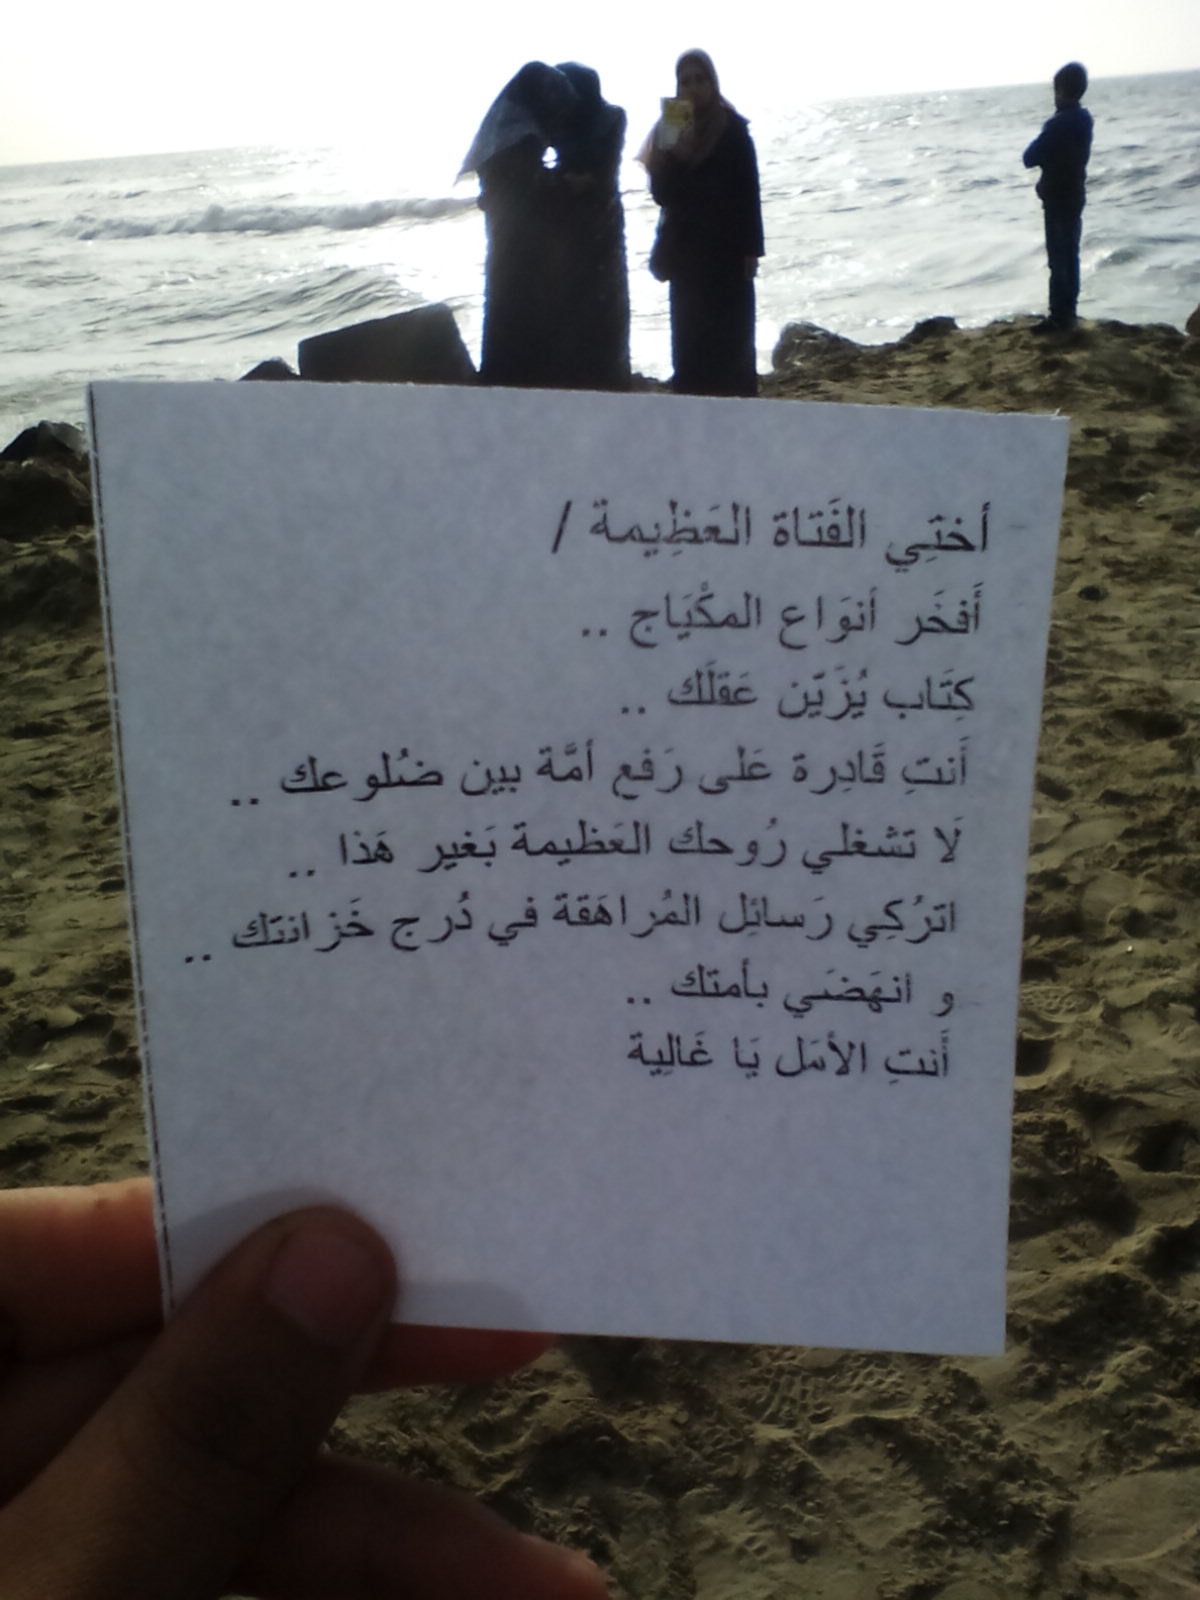 أختِي الفَتاة العَظِيمة /
أَفخَر أنوَاع المكْيَاج ..
كِتَاب يُزَيّن عَقلَك ..
أَنتِ قَادِرة عَلى رَفع أمَّة بين ضلُوعك ..
لَا تشغلي رُوحك العَظيمة بَغير هَذا ..
اترُكِي رَسائِل المُراهَقة في دُرج خَزانتك ..
و انهَضَي بأمتك ..
أَنتِ الأمَل يَا غَالِية